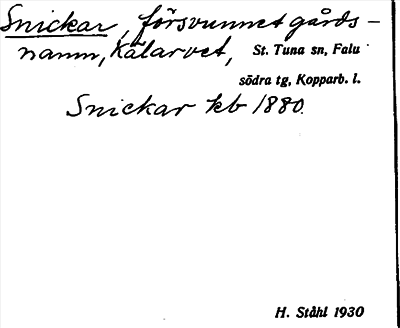 Snickar, försvunnet gårds-
namn, Kålarvet, St. Tuna sn, Falu
södra tg, Kopparb. l.
Snickar kb 1880.
H. Ståhl 1930